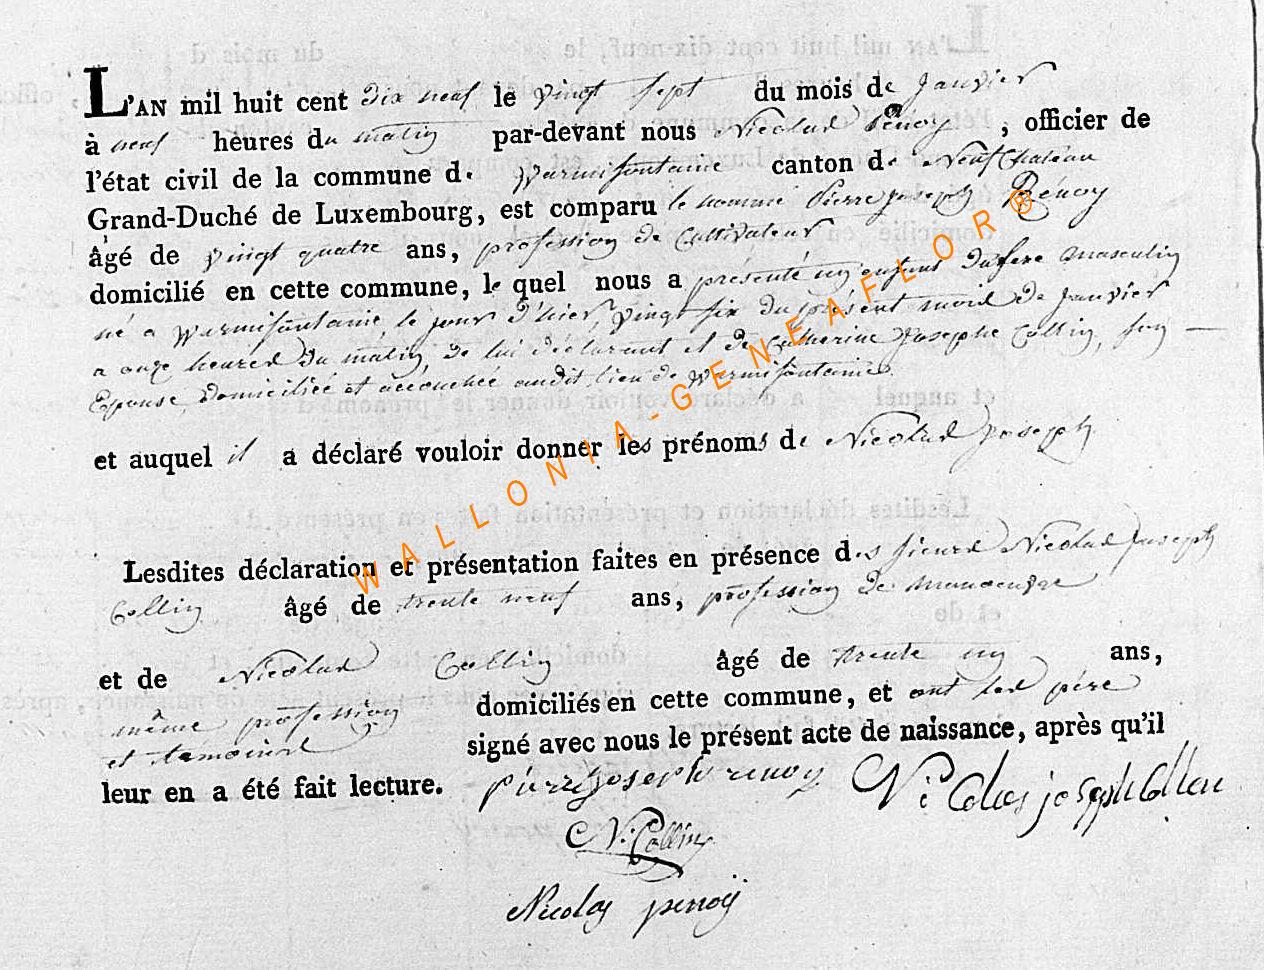 L'AN mil huit cent dix neuf le vingt sept du mois de Janvier
à neuf heures du matin par-devant nous Nicolas Penoy, officier de
l'état civil de la commune de Warmifontaine canton de Neufchateau
Grand-Duché de Luxembourg, est comparu le nommé Pierre joseph Rénoy
âgé de vingt quatre ans, profession de Cultivateur
domicilié en cette commune, le quel nous a présenté un enfant du sexe masculin
né a Warmifontaine, le jour d'hier, vingt six du présent mois de Janvier
a onze heures du matin, de lui déclarant et de Catherine Josephe Collin, son
Epouse, domiciliée et accouchée audit lieu de Warmifontaine.
et auquel il a déclaré vouloir donner les prénoms de Nicolas joseph
Lesdites déclaration et présentation faites en présence des sieurs Nicolas joseph
Collin âgé de trente neuf ans, profession de manoeuvre
et de Nicolas Collin âgé de trente un ans,
même profession domiciliés en cette commune, et ont les père
et temoins signé avec nous le présent acte de naissance, après qu'il
leur en a été fait lecture. pierre joseph renoy Nicolas joseph Collin
N. Collin
Nicolas penoy
WALLONIA-GENEAFLOR®